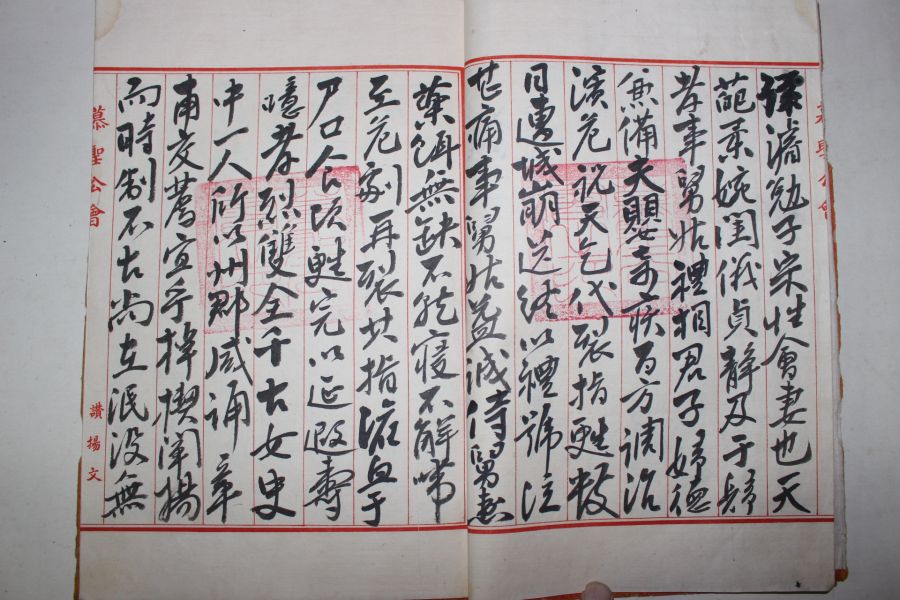 濬勉子宗性會妻也天
葩柔婉閨儀貞靜及于歸
孝事舅姑禮相君子婦德
兼備夫嬰奇疾百方調治
濱危祝天乞代裂指甦數
日遭城崩送終以禮號泣
茹痛事舅姑益誠侍舅患
藥餌無缺不能寢不解帶
至危劇再裂其指注血于
尸口食頃甦完以延遐壽
噫孝烈雙全千古女史
中一人所以州郡咸誦章
甫交薦宜乎棹楔闡揚
而時制不古尚在泯没無
慕聖公會
讚揚文